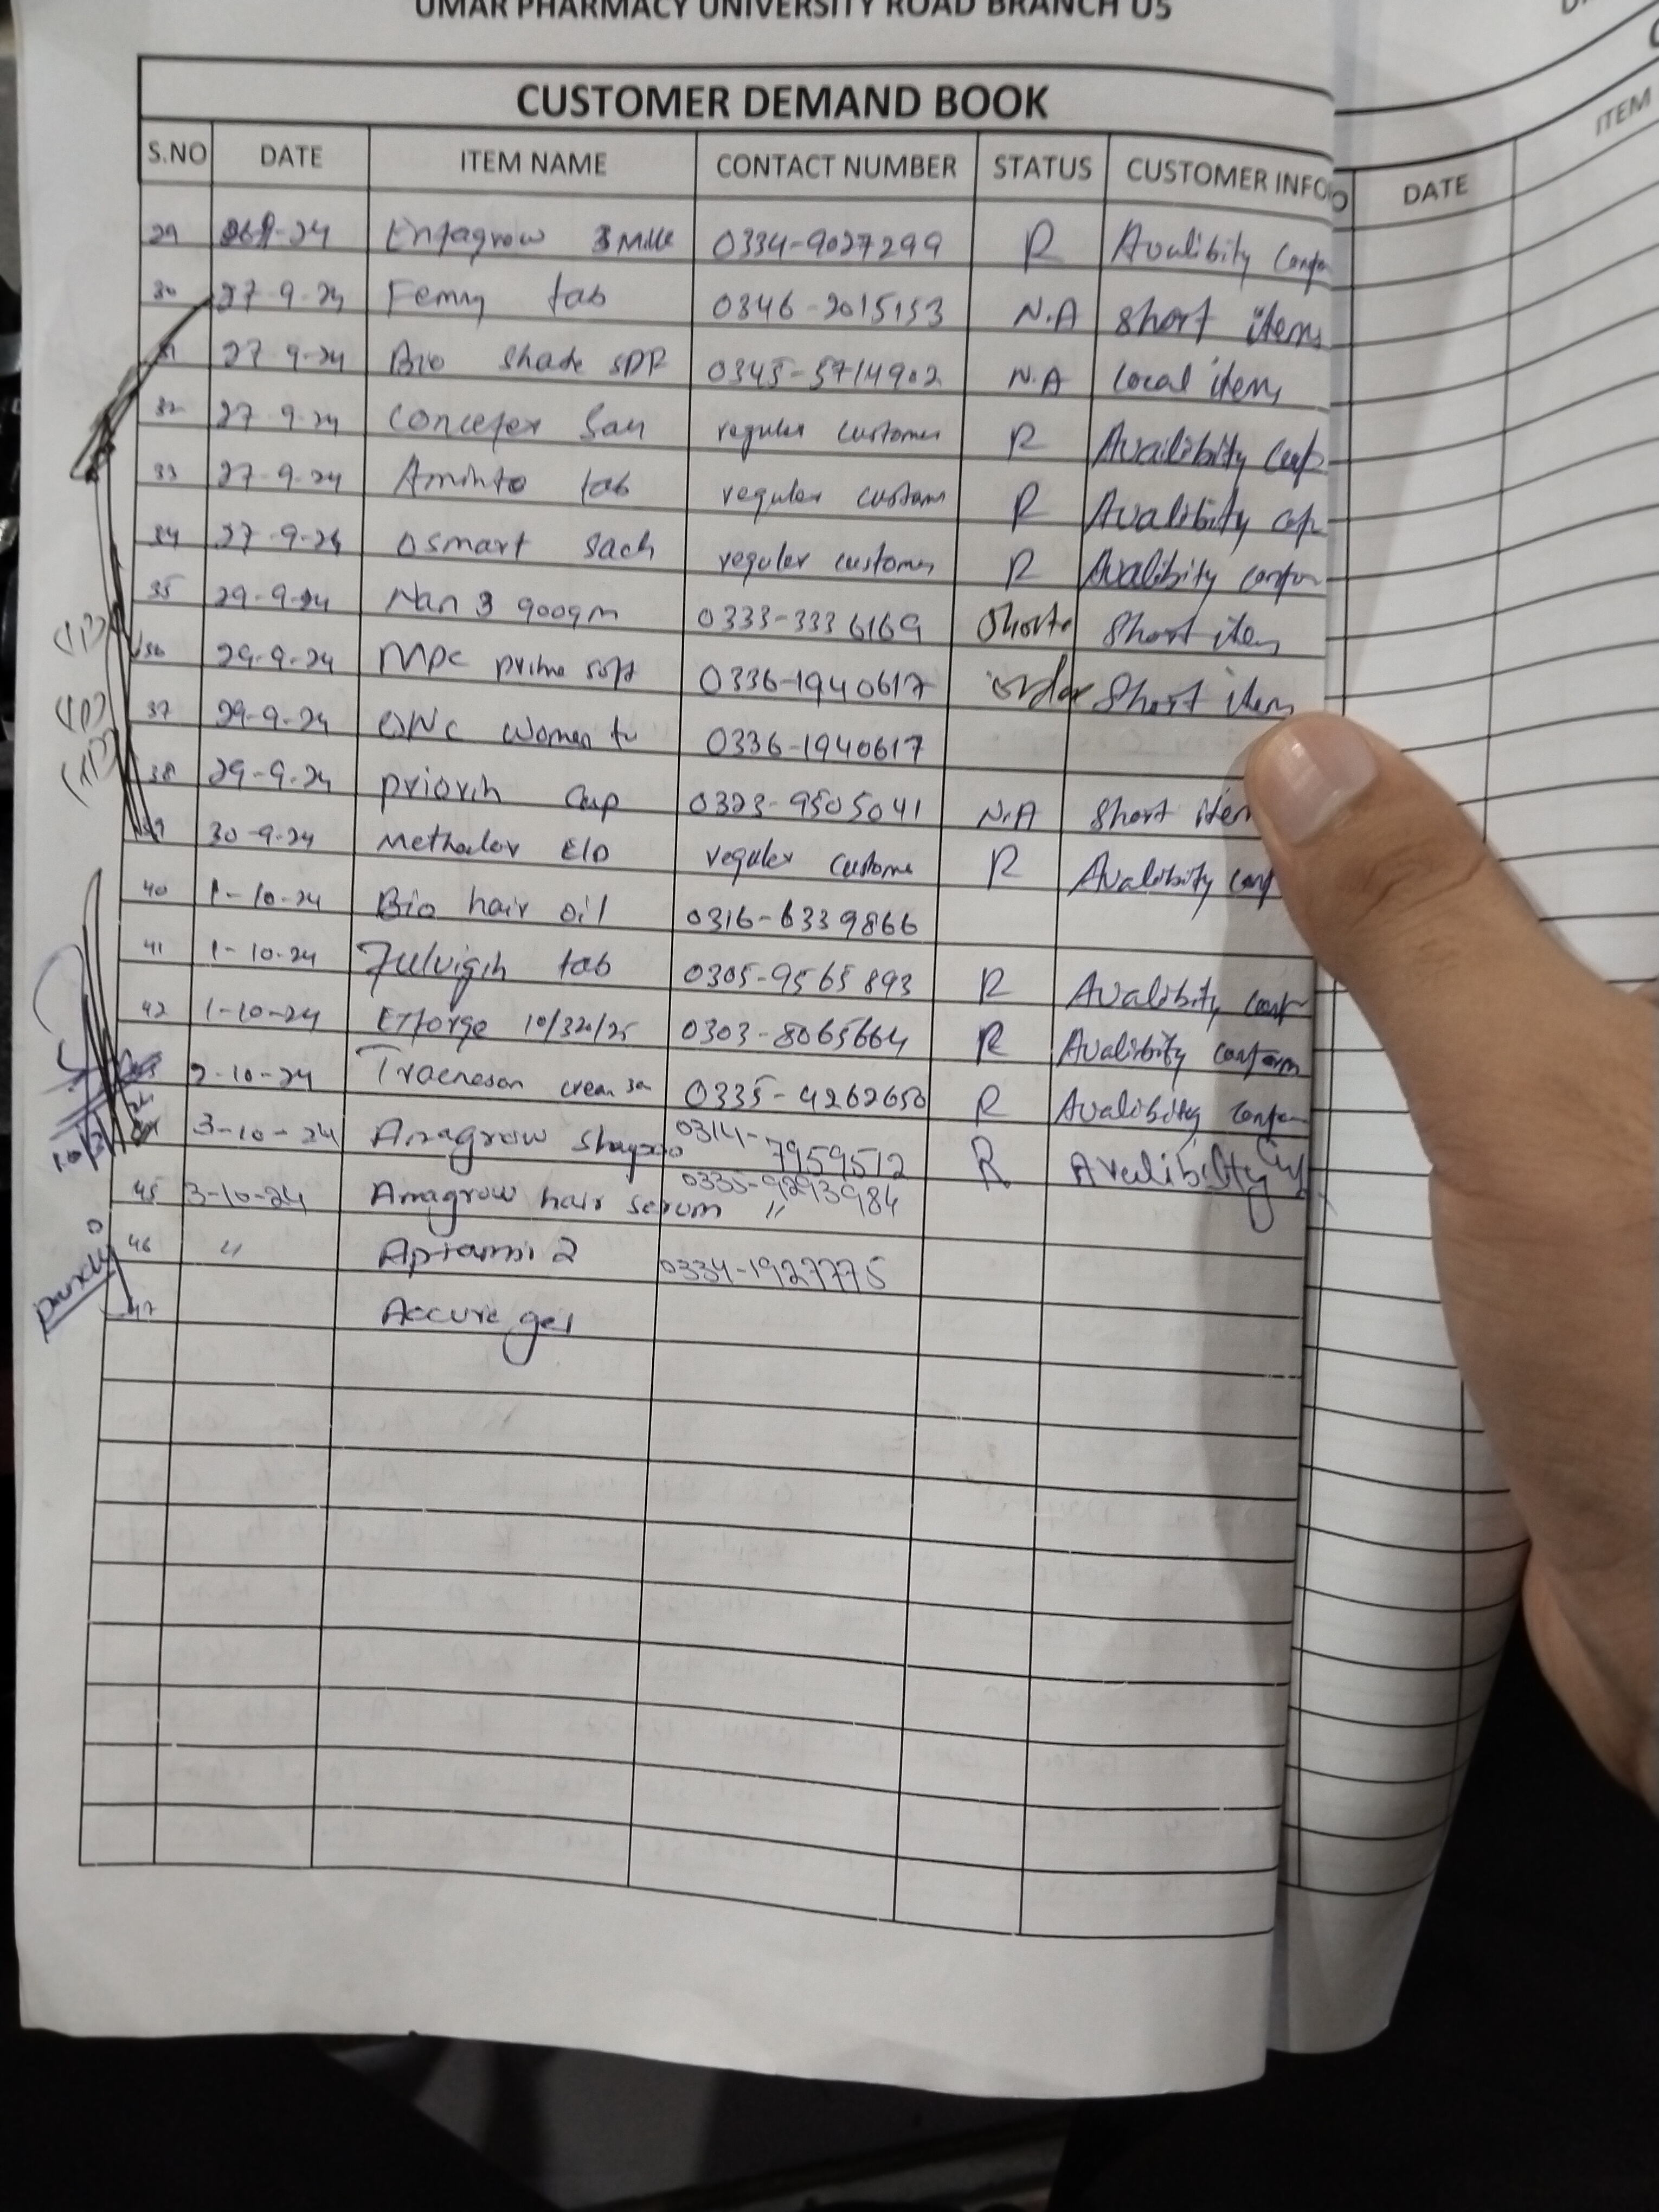 UMAR PHARMACY UNIVERSITY ROAD BRANCH U5
CUSTOMER DEMAND BOOK
S.NO DATE ITEM NAME CONTACT NUMBER STATUS CUSTOMER INFO
29 -24 Enfagrow 3 Milk 0334-9027299 R Avalibity
30 27-9-24 Femmy tab 0346-2015153 N.A short items
31 27-9-24 Bio Shade SPF 0345-5714902 N.A Local items
32 27-9-24 regular customer R Availibity
33 27-9-24 Aminto tab regular custom R Avalibity
34 27-9-24 Osmart Sach regular customer R Avalibity
35 29-9-24 Nan 3 900gm 0333-3336169 Short Short item
36 29-9-24 prime soft 0336-1940617 order Short item
37 29-9-24 women 0336-1940617
38 29-9-24 Priorin Cap 0323-9505041 N.A Short item
39 30-9-24 regular custome R Avalibity conf
40 1-10-24 Bio hair oil 0316-6339866
41 1-10-24 Fulvigin tab 0305-9565893 R Avalibity
42 1-10-24 10/320/25 0303-8065664 R Avalibity conform
2-10-24 cream 0335-4262650 R Avalibity
3-10-24 Anagrow 0314-7959512 R Avalibility
45 3-10-24 Anagrow hair serum 0335-9293984
"
46 " Aptamil 2 0334-1927775
47 Accure gel
DATE
ITEM